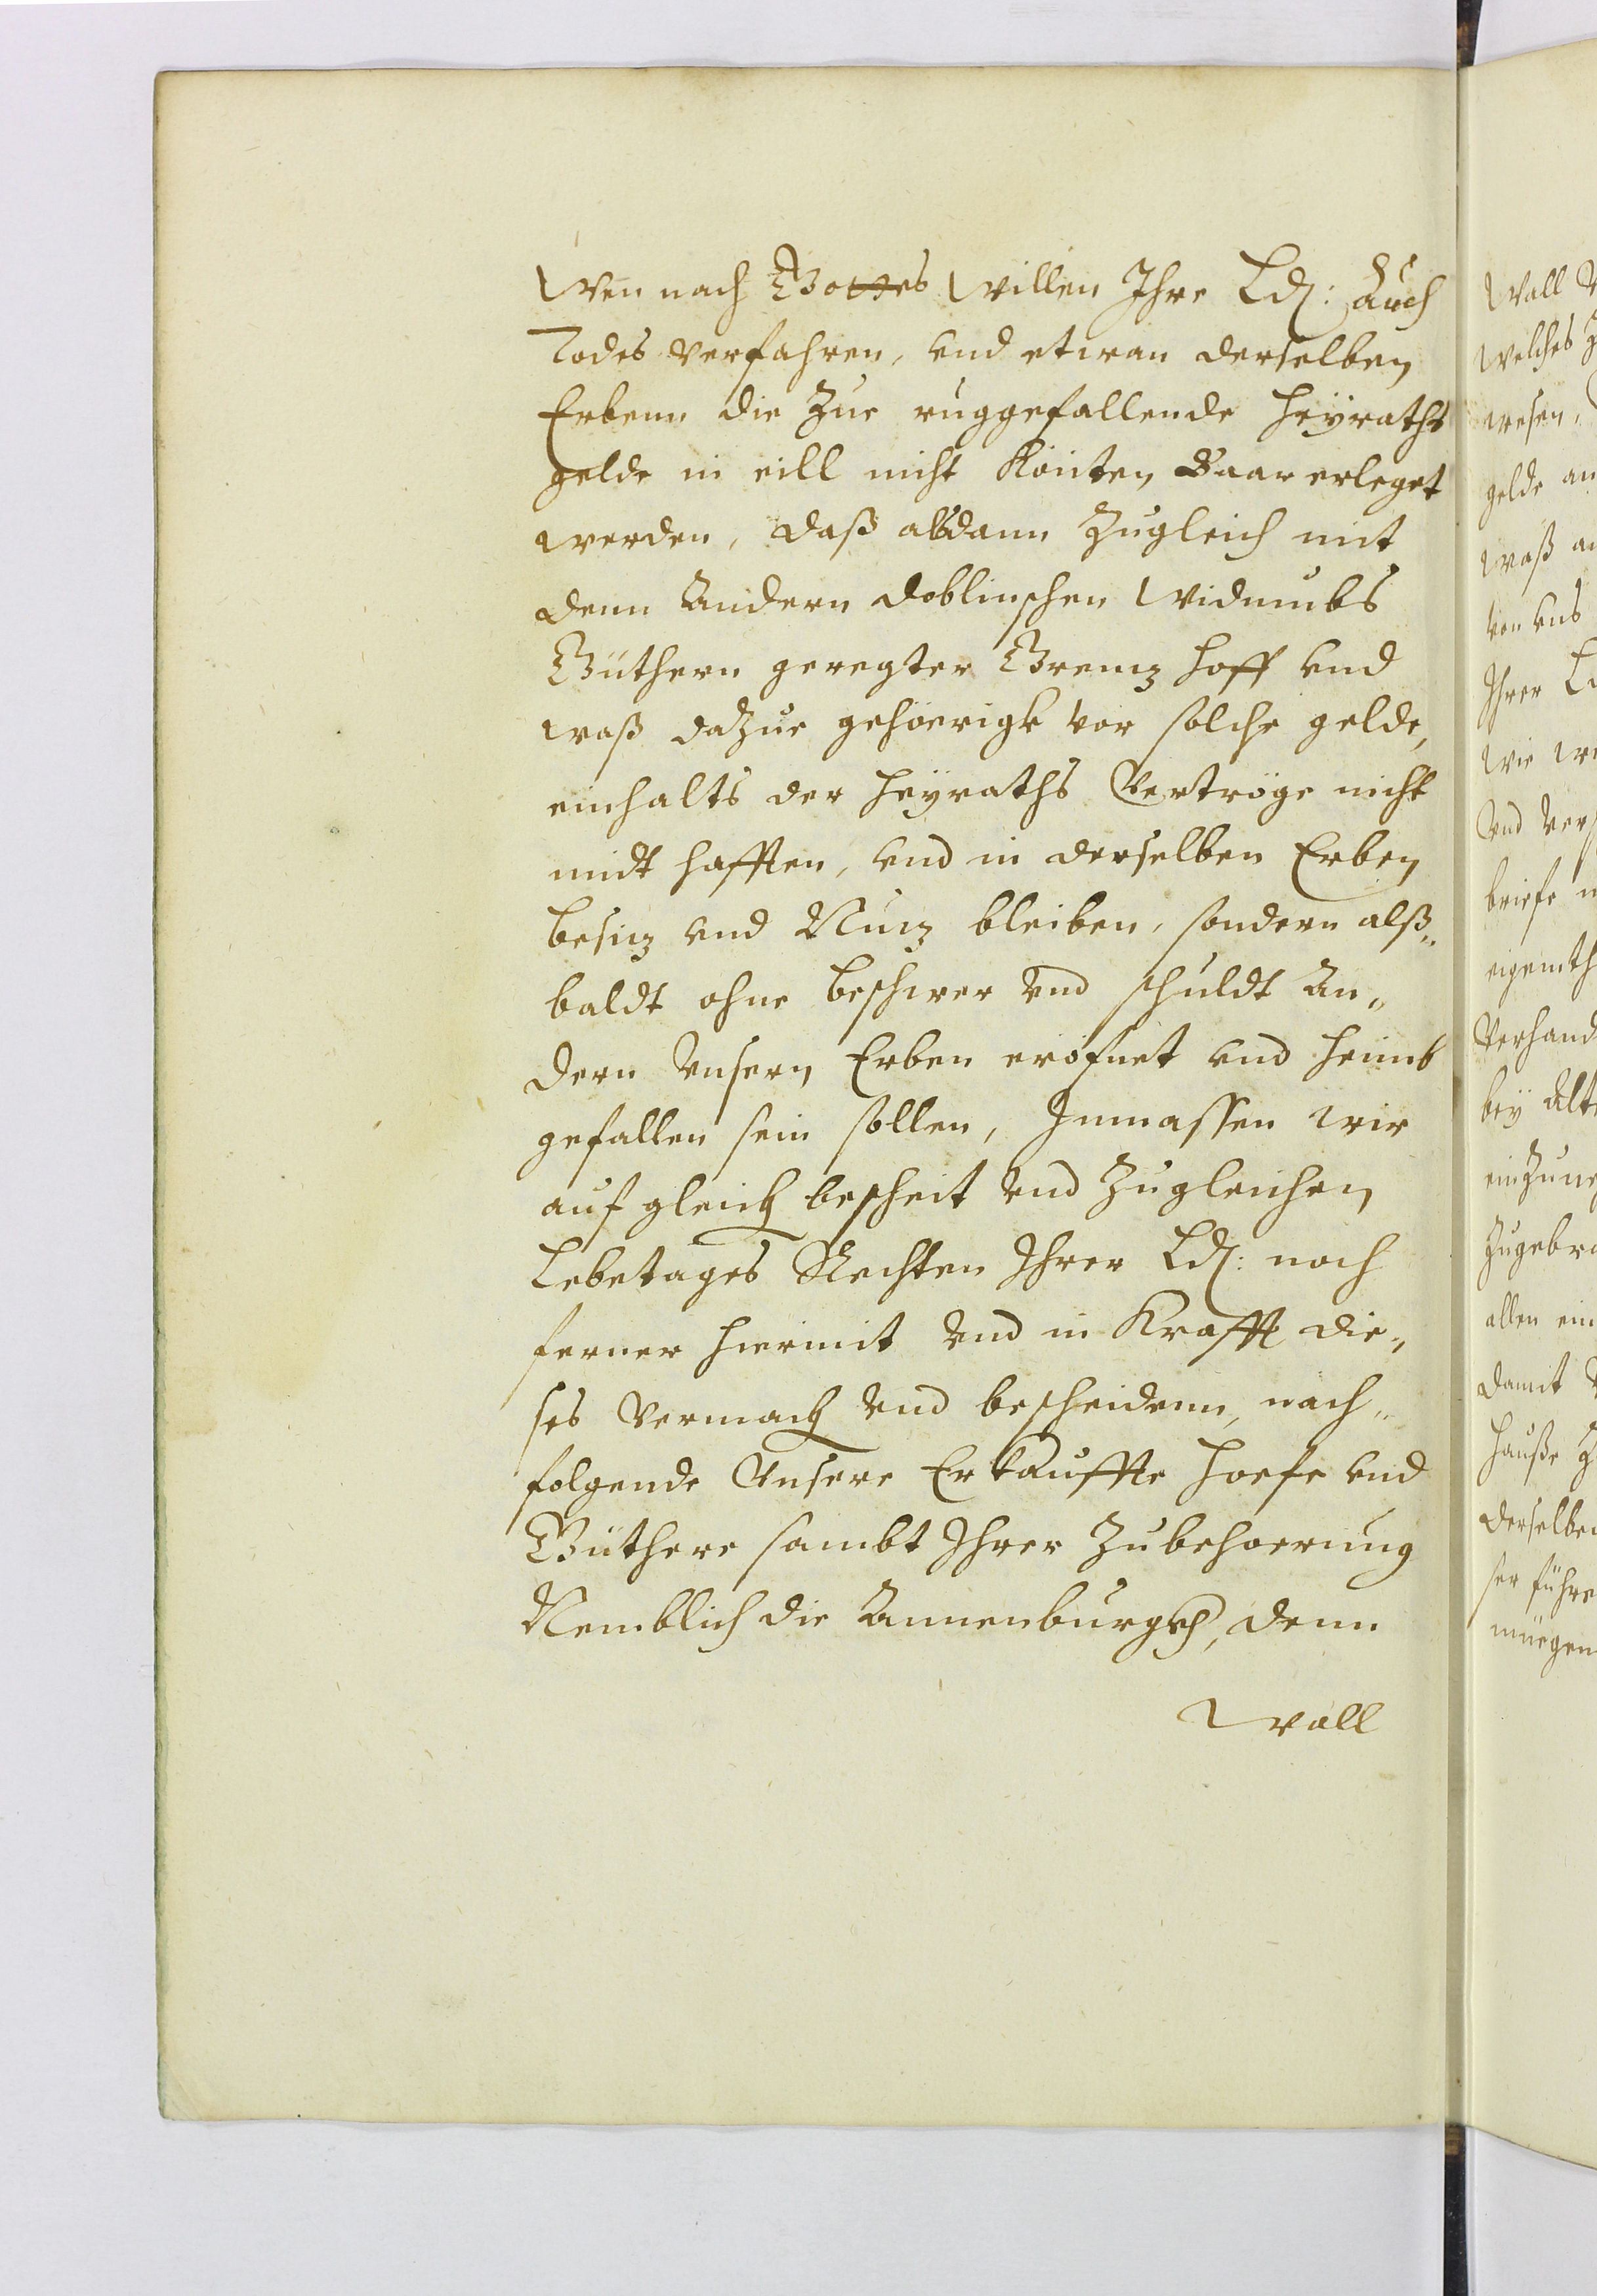 Wen nach Gottes Willen Ihre Ld: Auch
Todes verfahren, vnd etwan derselben
Erbenn die Zue ruggefallende Heyraths
gelde in eill nicht Könten Baar erleget
werden, daß alsdann Zugleich mit
denn Andern Doblinschen Widumbs
Güthern geregter Grenz Hoff vnd
waß daZue gehoerigk vor solche gelde,
einhalts der Heyraths Verträge nicht
midt hafften, vnd in derselben Erben
besiz vnd Nuz bleiben, sondern alß„
baldt ohne beschwer vnd schuldt An„
dern Vnsern Erben eröfnet vnd heimb
gefallen sein sollen, Inmassen wir
auf gleich bescheit vnd Zugleichen
Lebetages Rechten Ihrer Ld: noch
ferner hiermit vnd in Krafft die„
ses vermach vnd bescheidenn, nach„
folgende Vnsere Erkauffte Hoefe vnd
Güthere sambt Ihrer Zubehoerung
Nemblich die Annenburgk, denn
Wall
Wall
welches
wesen,
gelde an
waß
von vns
Ihrer
wie
vnd
briefe
eigenth
Verhand
bey Alt
einZune
Zugebra
allen ein
damit
Hauße
derselben
ser führe
müegen